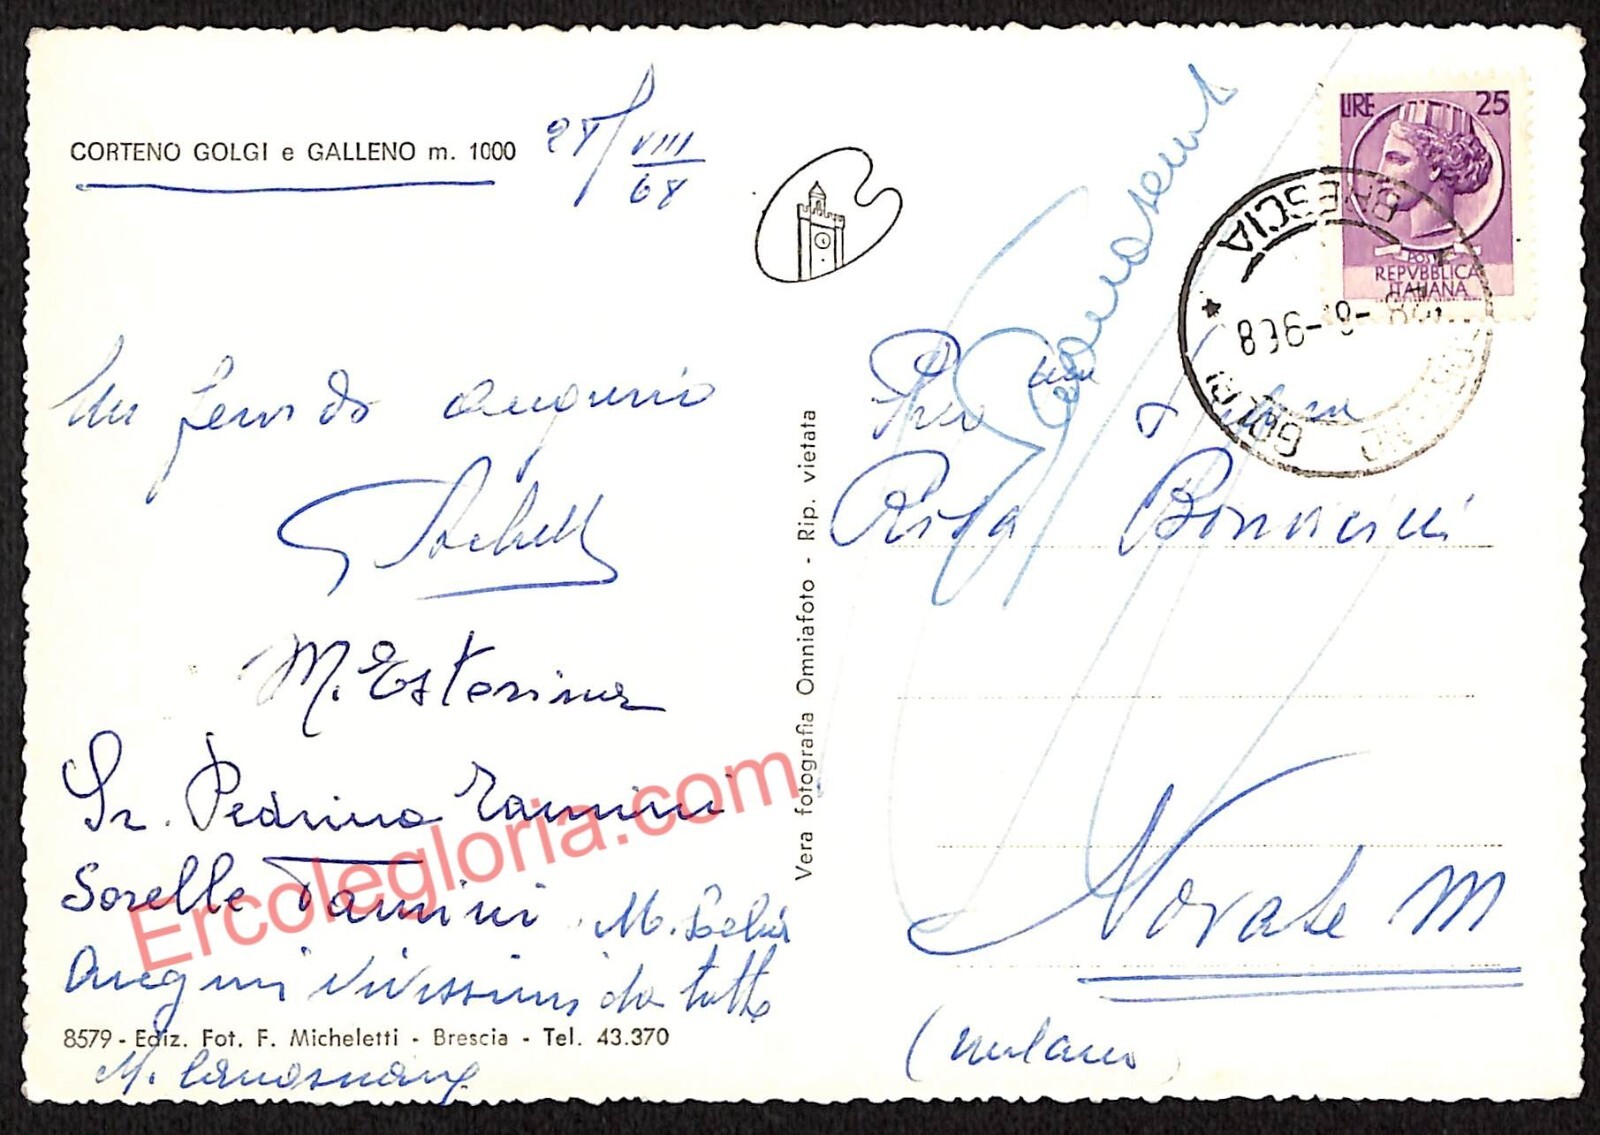 CORTENO GOLGI e GALLENO m. 1000
28/VIII/68
Un fervido augurio
M. Esterina
Sr. Pedrina Zannini
Sorelle Tannini
M. Lelia
Auguri vivissimi da tutte
8579 - Ediz. Fot. F. Micheletti - Brescia - Tel. 43.370
M.
Vera fotografia Omniafoto - Rip. vietata
LIRE 25
POSTE
REPVBBLICA
ITALIANA
BRESCIA
GOLGI
Rosa
Novate M
(milano)
Ercolegloria.com